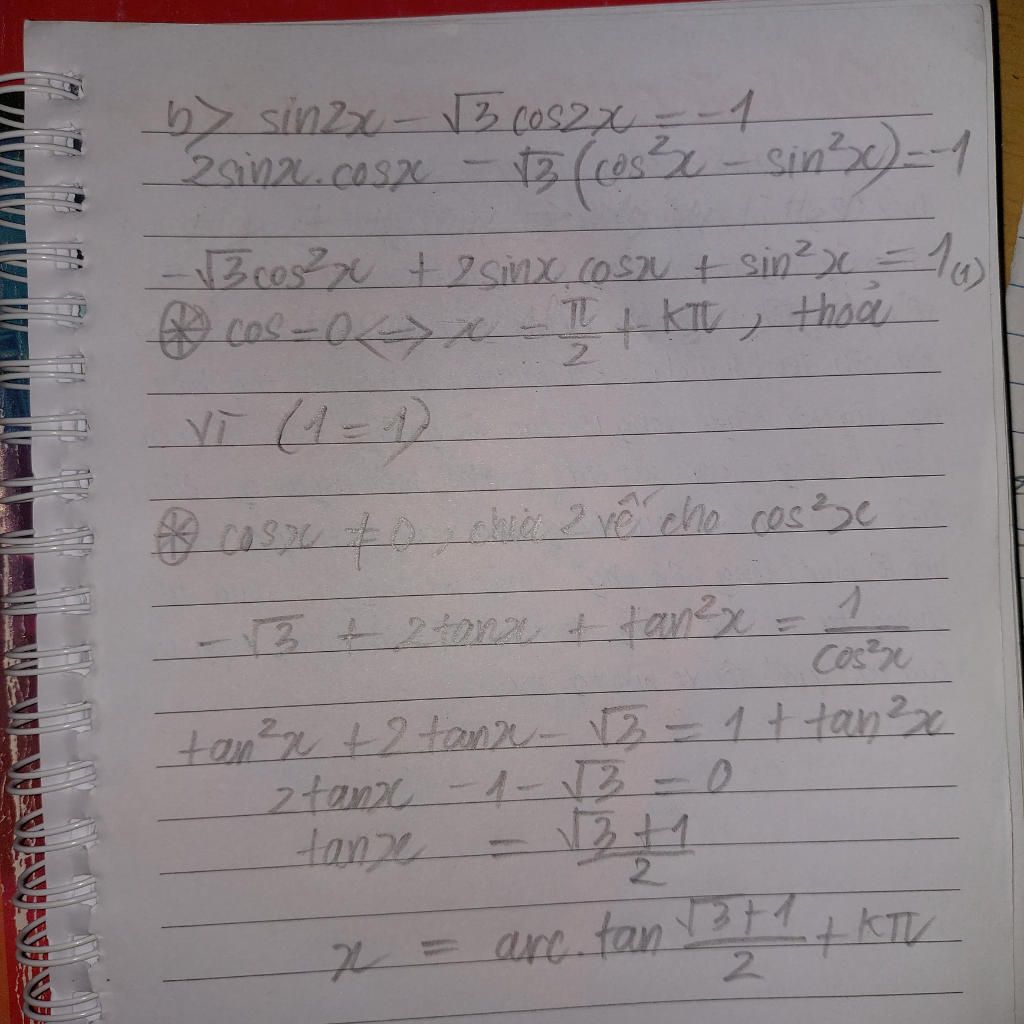 b> sin2x - √3 cos2x = -1
2sinx.cosx - √3(cos²x - sin²x) = -1
-√3cos²x + 2sinx.cosx + sin²x = 1 (1)
⊛ cos = 0 <=> x = π/2 + kπ, thoả
Vì (1 = 1)
⊛ cosx ≠ 0, chia 2 vế cho cos²x
-√3 + 2tanx + tan²x = 1/cos²x
tan²x + 2tanx - √3 = 1 + tan²x
2tanx - 1 - √3 = 0
tanx = (√3 + 1)/2
x = arc.tan (√3 + 1)/2 + kπ